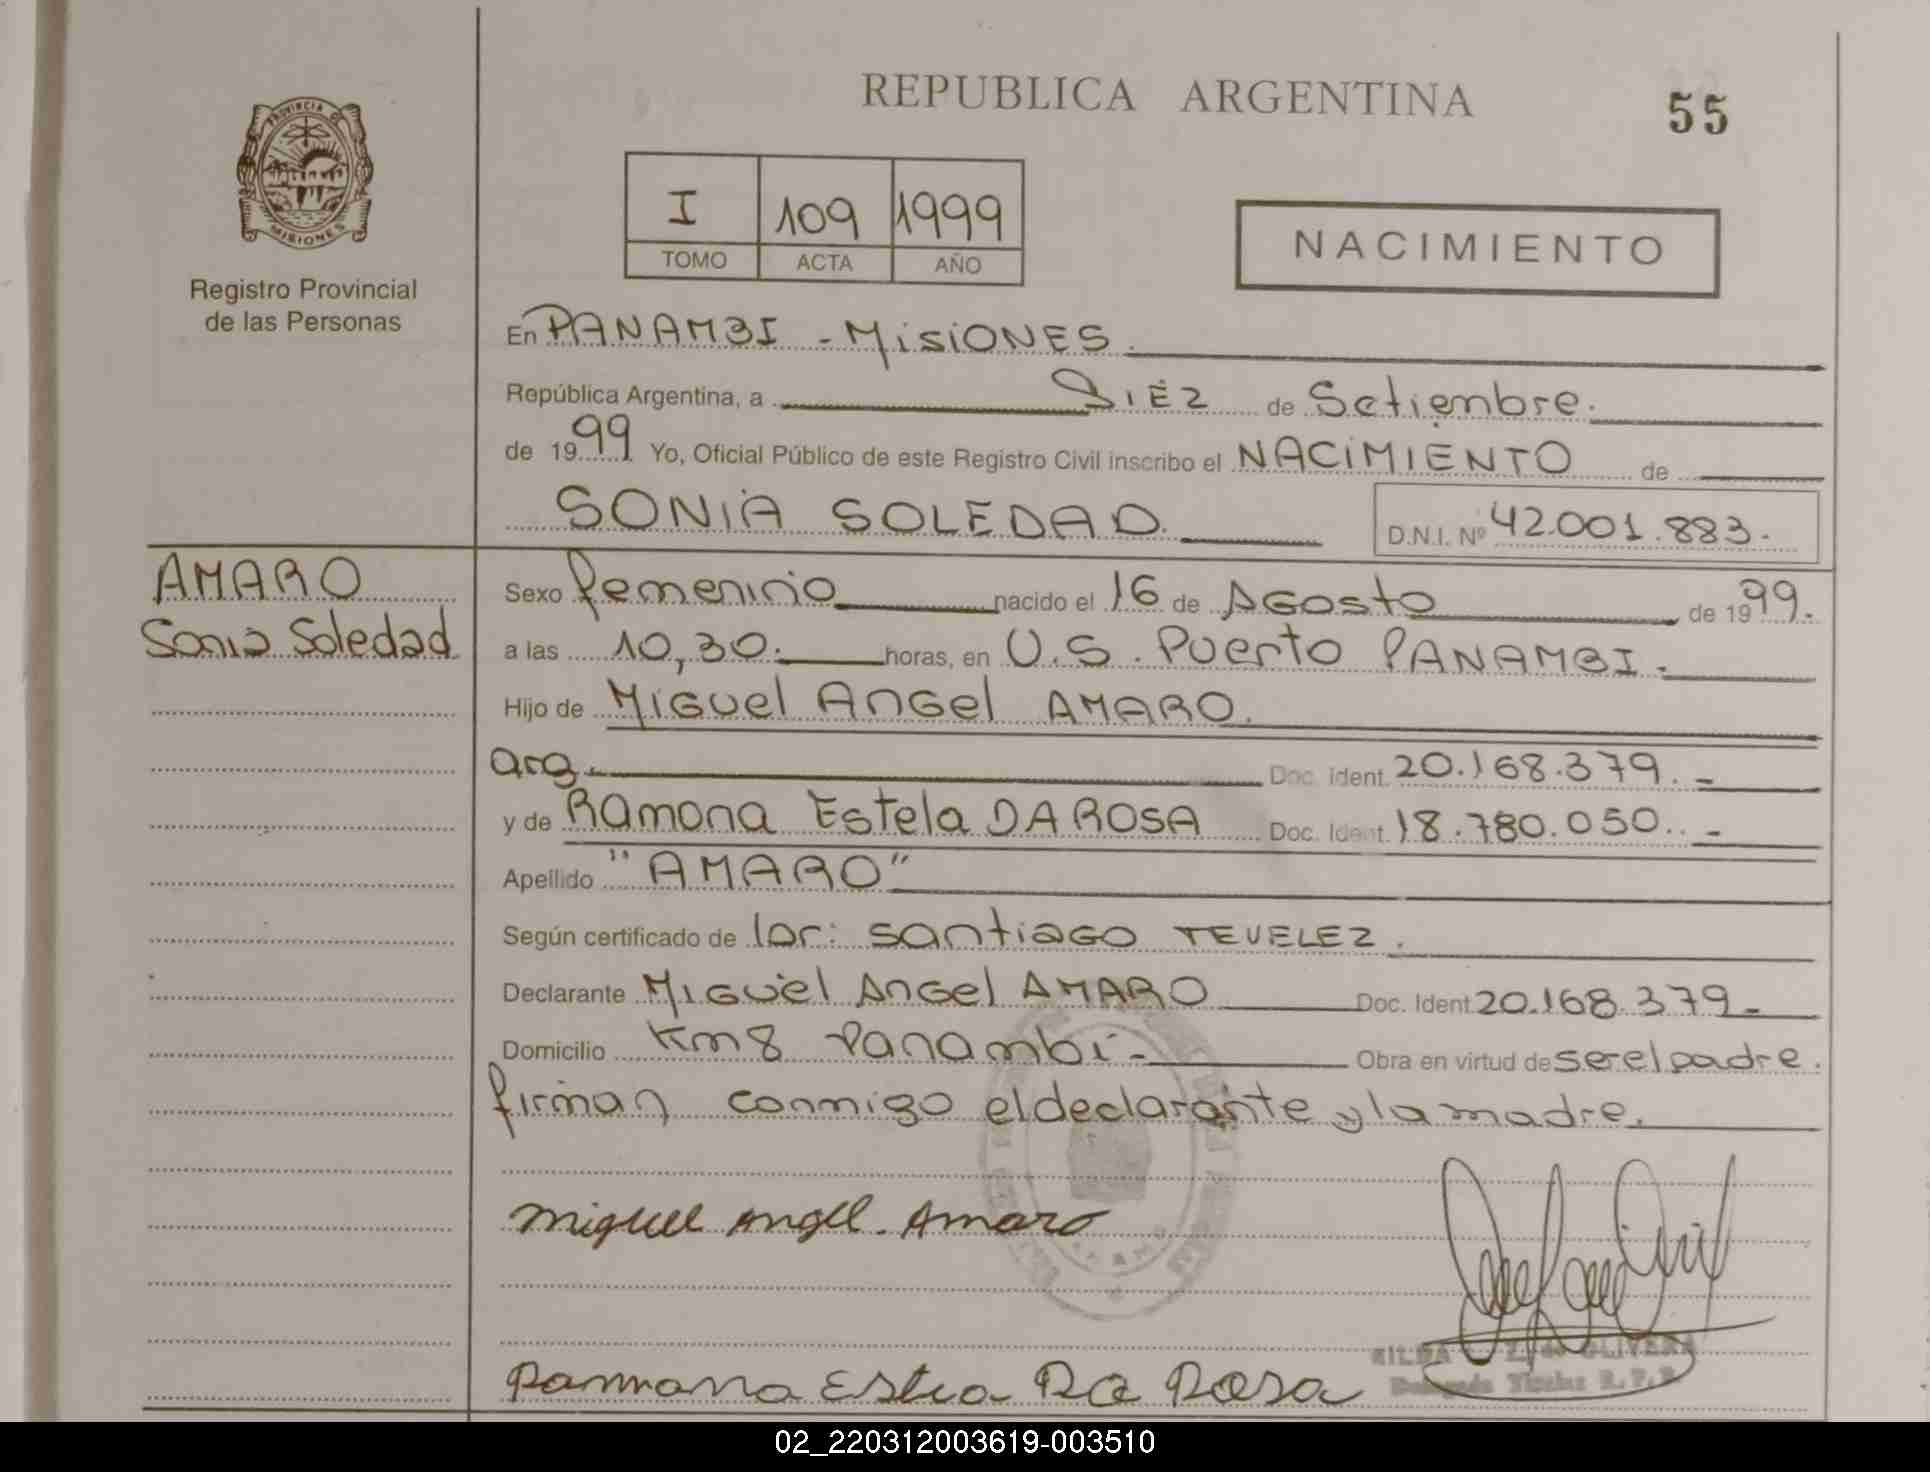 REPUBLICA ARGENTINA
55
PROVINCIA DE
MISIONES
Registro Provincial
de las Personas
I 109 1999
TOMO ACTA AÑO
NACIMIENTO
En PANAMBI - MisiONES.
República Argentina, a DIEZ de Setiembre.
de 1999 Yo, Oficial Público de este Registro Civil inscribo el NACIMIENTO de
SONIA SOLEDAD. D.N.I. Nº 42.001.883.
AMARO
Sonia Soledad
Sexo femenino nacido el 16 de AGosto de 1999.
a las 10,30. horas, en U.S. Puerto PANAMBI.
Hijo de MIGUel ANGel AMARO.
arg. Doc. Ident. 20.168.379. -
y de RAmona Estela DA ROSA Doc. Ident. 18.780.050. -
Apellido "AMARO"
Según certificado de santiaGO TEVELEZ.
Declarante MIGUel ANGel AMARO Doc. Ident 20.168.379-
Domicilio Km 8 Panambi- Obra en virtud de ser el padre.
firman conmigo el declarante y la madre.
Miguel Angel. Amaro
Da Rosa
OLIVERA
02_220312003619-003510